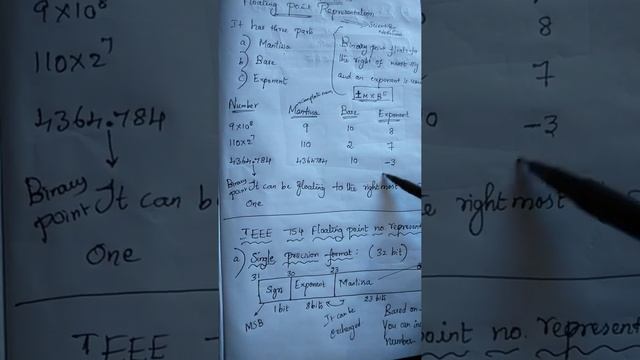 Floating Point Representation
It has three parts
a) Mantisa
b) Base
c) Exponent
Scientific Notation
Binary point floats to
the right of most sig
and an exponent is used
±M×B^E
Number Mantisa Base Exponent
9×10⁸ 9 10 8
110×2⁷ 110 2 7
4364.784 4364784 10 -3
Binary point It can be floating to the right most
One
IEEE 754 Floating point no. represent
a) Single precision format: (32 bit)
31 30 23
Sign Exponent Mantisa
1 bit 8 bits 23 bits
MSB
It can be
exchanged
Based on
You can in
number
9×10⁸
110×2⁷
4364.784
Binary point It can b
One
IEEE
8
7
-3
e right most
oint no. represent